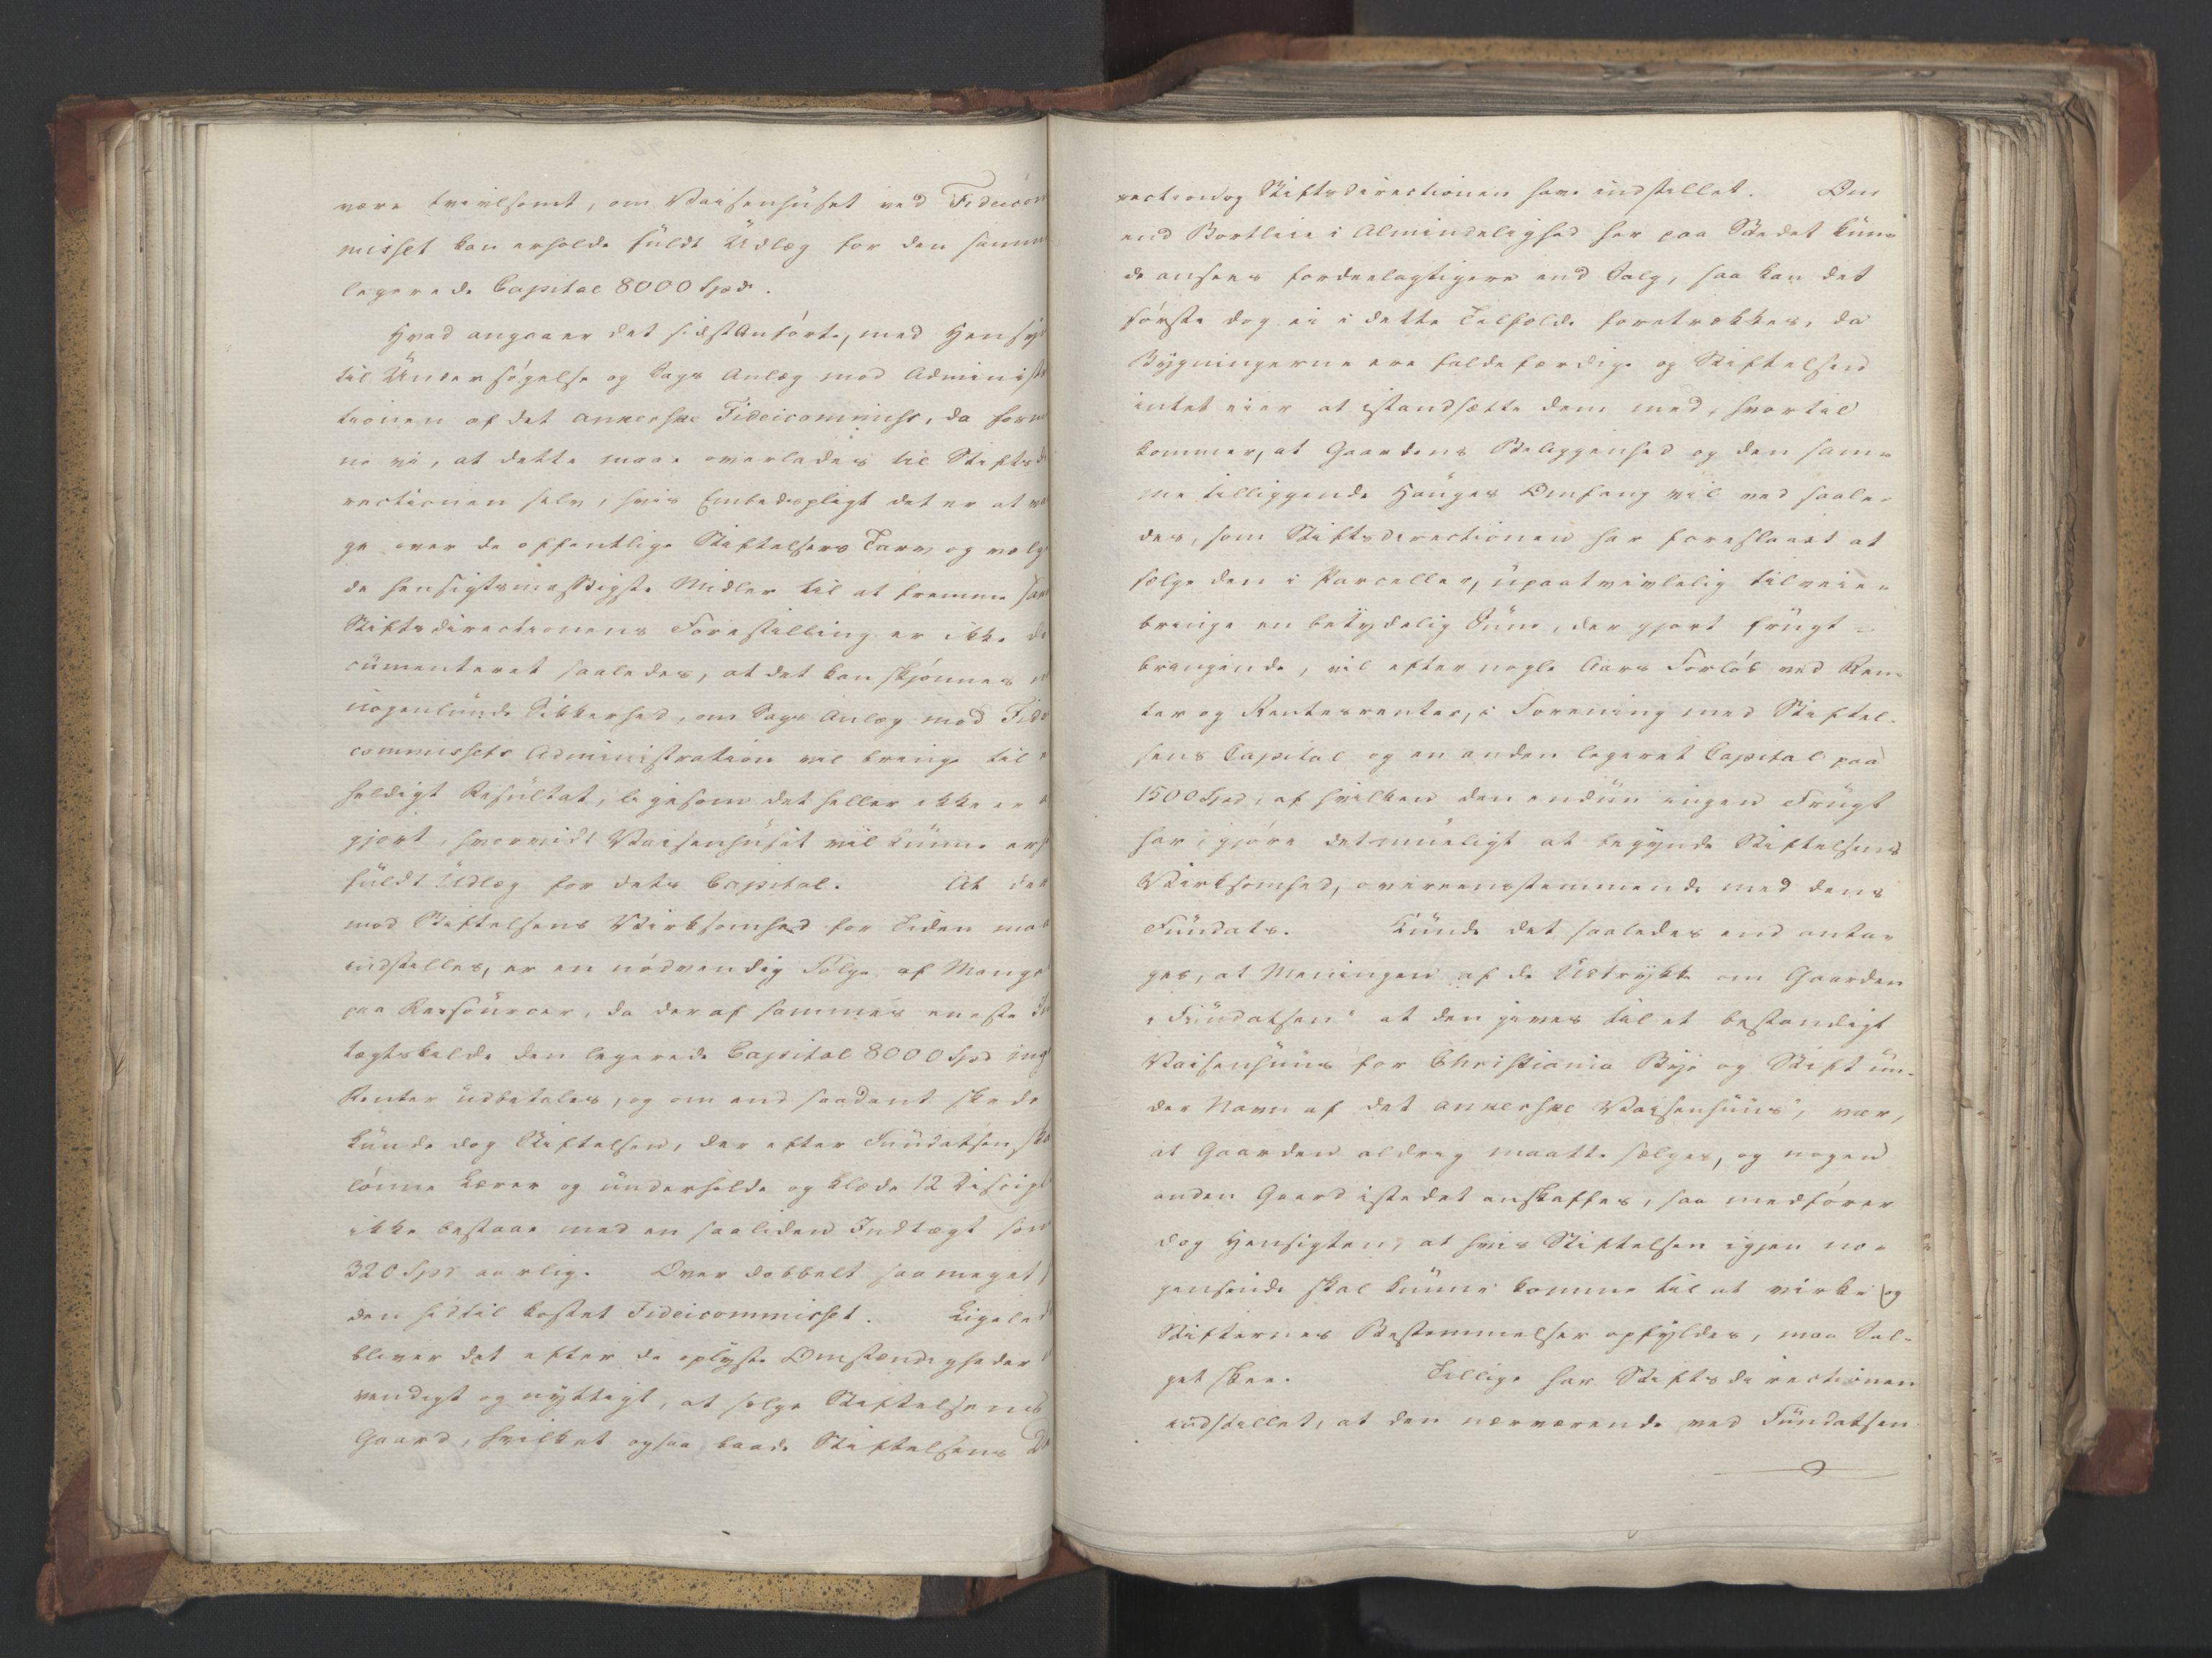 være tvivlsomt, om Vaisenhuset ved Fideicom
misset kan erholde fuldt Udlæg for den samme
legerede Capital 8000 Spd.
Hvad angaaer det sidst Anførte, med Hensyn
til Undersøgelse og Sags Anlæg mod Administra
tionen af det ankerske Fideicommiss, da forme
ne vi, at dette maae overlades til Stiftsdi
rectionen selv, hvis Embedspligt det er at vaa
ge over de offentlige Stiftelsers Tarv og vælge
de hensigtsmæssigste Midler til at fremme sam
Stiftsdirectionens Forestilling er ikke do
cumenteret saaledes, at det kan skjønnes
nogenlunde Sikkerhed, om Sags Anlæg mod Fidei
commissets Administration vil bringe til
heldigt Resultat, ligesom det heller ikke er
gjort, hvorvidt Vaisenhuset vil kunne erh
fuldt Udlæg for dets Capital. At der
mod Stiftelsens Virksomhed for Tiden maa
indstilles, er en nødvendig Følge af Mangel
paa Ressourcer, da der af sammes eneste In
tægtskilde den legerede Capital 8000 Spd ing
Renter udbetales, og om end saadant skede
kunde dog Stiftelsen, der efter Fundatsen ska
lønne Lærer og underholde og klæde 12 Discipl
ikke bestaae med en saa liden Indtægt som
320 Spd aarlig. Over dobbelt saa meget
den hidtil kostet Fideicommisset. Ligeled
bliver det efter de oplyste Omstændigheder
vendigt og nyttigt, at sælge Stiftelsens
Gaard, hvilket ogsaa baade Stiftelsens Di
rection og Stiftsdirectionen have indstillet. Om
end Bortleie i Almindelighed her paa Stedet kun-
de ansees fordeelagtigere end Salg, saa kan det
første dog ei i dette Tilfælde foretrækkes, da
Bygningerne ere faldefærdige og Stiftelsen
intet eier at istandsætte dem med, hvortil
kommer, at Gaardens Beliggenhed og den sam-
me tilliggende Hauges Omfang vil ved saale-
des, som Stiftsdirectionen har foreslaaet at
sælge den i Parceller, upaatvivlelig tilveie-
bringe en betydelig Sum, der gjort frugt-
bringende, vil efter nogle Aars Forløb ved Ren-
ter og Rentesrenter, i Forening med Stiftel-
sens Capital og en anden legeret Capital paa
1500 Spd, af hvilken den endnu ingen Frugt
har, gjøre det mueligt at begynde Stiftelsens
Virksomhed, overeensstemmende med dens
Fundats. Kunde det saaledes end anta-
ges, at Meningen af de Udtrykke om Gaarden
i Fundatsen" at den gives til et bestandigt
Vaisenhuus for Christiania Bye og Stift un-
der Navn af det ankerske Vaisenhuus", var,
at Gaarden aldrig maatte sælges, og nogen
anden Gaard istedet anskaffes, saa medfører
dog Hensigten, at hvis Stiftelsen igjen no-
gensinde skal kunne komme til at virke og
Stifternes Bestemmelser opfyldes, maa Sal-
get skee. Tillige har Stiftsdirectionen
indstillet, at den nærværende ved Fundatsen